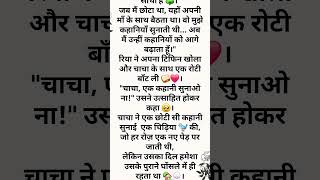 जब मैं छोटा था, यहीं अपनी
माँ के साथ बैठता था। वो मुझे
कहानियाँ सुनाती थी... अब
मैं उन्हीं कहानियों को आगे
बढ़ाता हूँ।"
रिया ने अपना टिफिन खोला
और चाचा के साथ एक रोटी
बाँट ली 🫓💗।
"चाचा, एक कहानी सुनाओ
ना!" उसने उत्साहित होकर
कहा 🥹।
चाचा ने एक छोटी सी कहानी
सुनाई एक चिड़िया 🐦 की,
जो हर रोज़ एक नए पेड़ पर
जाती थी,
लेकिन उसका दिल हमेशा
उसके पुराने घोंसले में ही
रहता था 🏡💭।